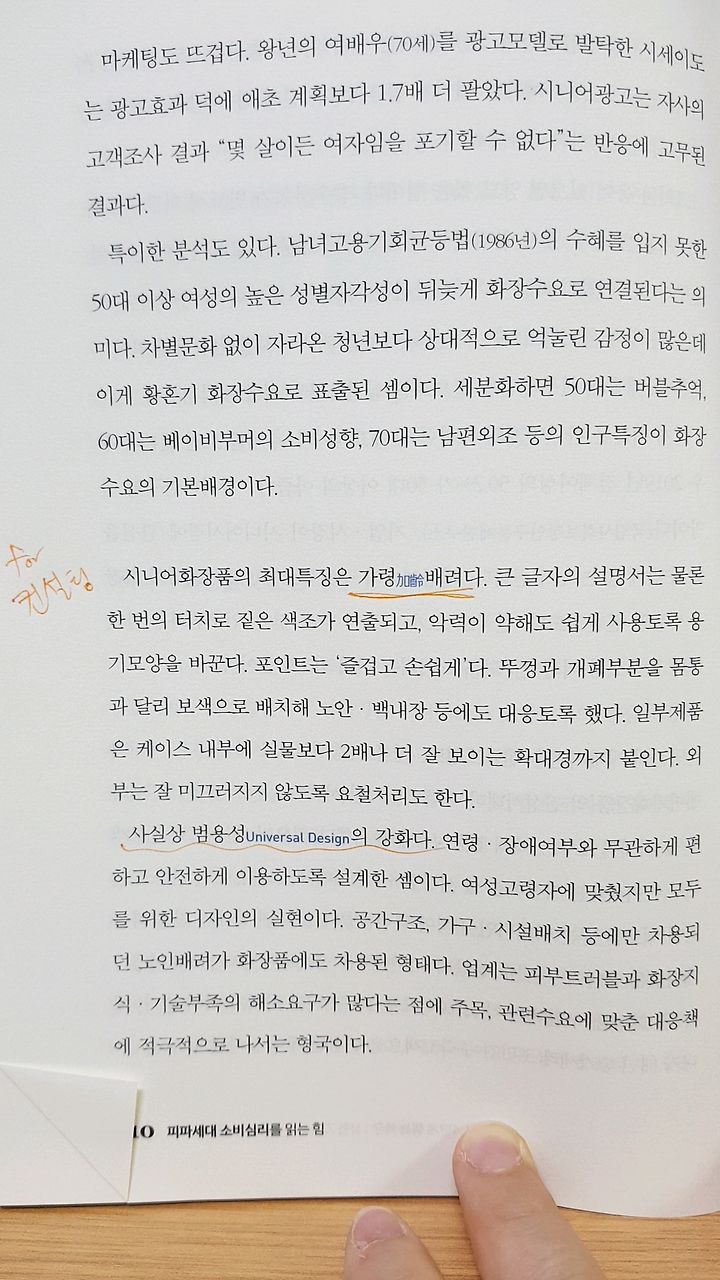 마케팅도 뜨겁다. 왕년의 여배우(70세)를 광고모델로 발탁한 시세이도
는 광고효과 덕에 애초 계획보다 1.7배 더 팔았다. 시니어광고는 자사의
고객조사 결과 “몇 살이든 여자임을 포기할 수 없다”는 반응에 고무된
결과다.
특이한 분석도 있다. 남녀고용기회균등법(1986년)의 수혜를 입지 못한
50대 이상 여성의 높은 성별자각성이 뒤늦게 화장수요로 연결된다는 의
미다. 차별문화 없이 자라온 청년보다 상대적으로 억눌린 감정이 많은데
이게 황혼기 화장수요로 표출된 셈이다. 세분화하면 50대는 버블추억,
60대는 베이비부머의 소비성향, 70대는 남편외조 등의 인구특징이 화장
수요의 기본배경이다.
for
컨설팅
시니어화장품의 최대특징은 가령加齡배려다. 큰 글자의 설명서는 물론
한 번의 터치로 짙은 색조가 연출되고, 악력이 약해도 쉽게 사용토록 용
기모양을 바꾼다. 포인트는 ‘즐겁고 손쉽게’다. 뚜껑과 개폐부분을 몸통
과 달리 보색으로 배치해 노안 · 백내장 등에도 대응토록 했다. 일부제품
은 케이스 내부에 실물보다 2배나 더 잘 보이는 확대경까지 붙인다. 외
부는 잘 미끄러지지 않도록 요철처리도 한다.
사실상 범용성Universal Design의 강화다. 연령 · 장애여부와 무관하게 편
하고 안전하게 이용하도록 설계한 셈이다. 여성고령자에 맞췄지만 모두
를 위한 디자인의 실현이다. 공간구조, 가구 · 시설배치 등에만 차용되
던 노인배려가 화장품에도 차용된 형태다. 업계는 피부트러블과 화장지
식 · 기술부족의 해소요구가 많다는 점에 주목, 관련수요에 맞춘 대응책
에 적극적으로 나서는 형국이다.
10 피파세대 소비심리를 읽는 힘